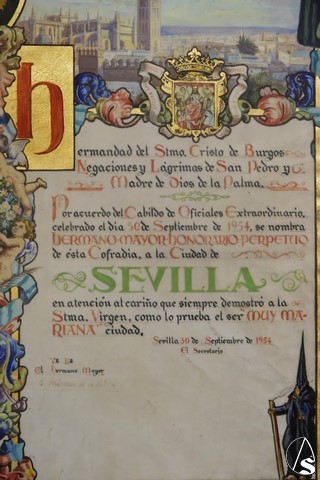 Hermandad del Stmo Cristo de Burgos
Negaciones y Lágrimas de San Pedro y
Madre de Dios de la Palma.
Por acuerdo del Cabildo de Oficiales Extraordinario,
celebrado el día 30 de Septiembre de 1954, se nombra
HERMANO MAYOR HONORARIO PERPETUO
de ésta Cofradía, a la Ciudad de
SEVILLA
en atención al cariño que siempre demostró a la
Stma. Virgen, como lo prueba el ser "MUY MA-
RIANA" ciudad.
Sevilla 30 de Septiembre de 1954
El Secretario
El Hermano Mayor